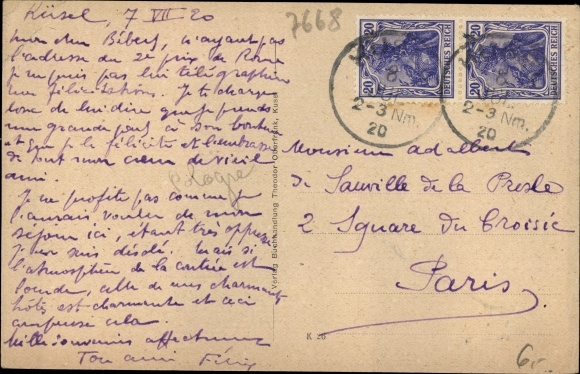 Küsel, 7 VII 20
mon cher Bébert, n'ayant pas
l'adresse du 2e prix de Rome
je ne puis pas lui télégraphier
mes félicitations. Je te charge
donc de lui dire que je prends
une grande part à son bonheur
et que je le félicite et l'embrasse
de tout mon cœur de vieil
ami.
Je ne profite pas comme je
l'aurais voulu de mon
séjour ici, étant très oppressé
J'en suis désolé. Mais si
l'atmosphère de la contrée est
lourde, celle de mes charmants
hôtes est charmante et ceci
compense cela.
Mille souvenirs affectueux
Ton ami
7668
20 DEUTSCHES REICH 20
20 DEUTSCHES REICH 20
2-3 Nm.
20
2-3 Nm.
20
Pologne
Verlag Buchhandlung Theodor Otterfrank, Kusel
Monsieur Adalbert
de Sauville de la Presle
2 Square du Croisic
Paris
K 26
6,-